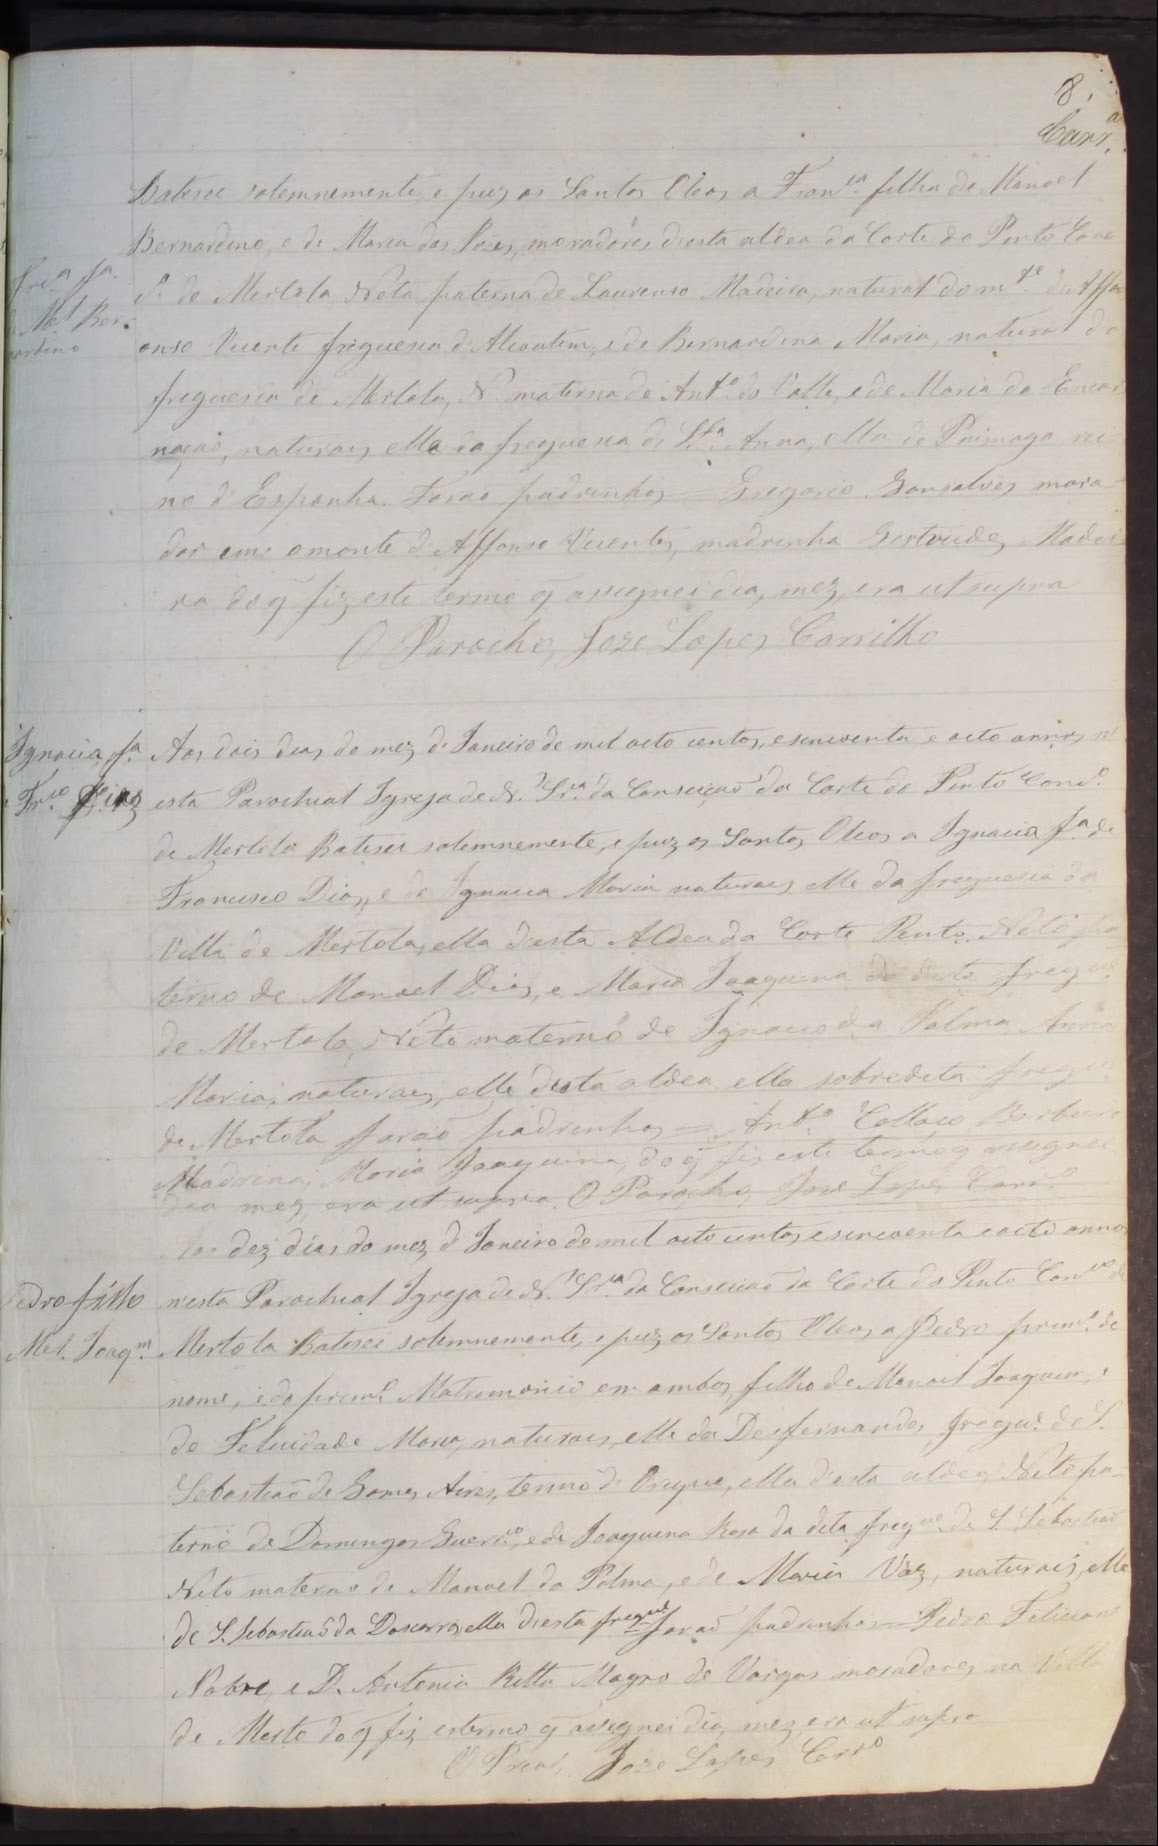 8.
Carr.ª
Batesei solemnemente, e puz os Santos Oleos a Fran.ca filha de Manoel
Bernardino, e de Maria das Pazes, moradores d'esta aldea da Corte do Pinto Conc
de Mertola Neta paterna de Laurenso Madeira, natural do m.te de Aff
Fr.ca f.ª
de M.el Ber
nardino
onso Vicente freguesia d'Alcoutim, e de Bernardina Maria, natural da
freguesia de Mertola, N. materna de Ant.º do Valle, e de Maria da Encar
nação, naturaes elle da freguesia de St.ª Anna, ella de Paimogo rei
no d'Espanha. Forão padrinhos = Gregorio Gonsalves mora-
dor em o monte d'Affonso Vicente, madrinha Gertrudes Madei
ra do q̃ fiz este termo q̃ assignei dia, mez, era ut supra
O Parocho, Joze Lopes Carrilho
Ignacia f.ª
Fr.co Dias
Aos dois dias do mez de Janeiro de mil oito centos, e sincoenta e oito annos n'
esta Parochial Igreja de N. Sr.ª da Conseição da Corte do Pinto Conc.º
de Mertola Batesei solemnemente, e puz os Santos Oleos a Ignacia f.ª de
Francisco Dias, e de Ignacia Maria naturaes elle da freguesia da
Villa de Mertola, ella d'esta Aldea da Corte Pinto. Neto pa
terno de Manoel Dias, e Maria Joaquina da dita fregue
de Mertola, Neto materno de Ignacio da Palma, Anna
Maria, naturaes, elle desta aldea ella sobredita fregue
de Mertola forão padrinhos = Ant.º Collaço
Madrina, Maria Joaquina, do q̃ fis este termo q̃ assignei
dia mez, era ut supra. O Parocho, Joze Lopes Carr.º
Aos dez dias do mez d'Janeiro de mil oito centos, e sincoenta e oito annos
Pedro filho
M.el Joaq.m
n'esta Parochial Igreja de N. Sr.ª da Conseição da Corte do Pinto Conc.º de
Mertola Batesei solemnemente, e puz os Santos Oleos a Pedro prim.º de
nome, e do prim.º Matrimonio em ambos, filho de Manoel Joaquim, e
de Felicidade Maria, naturaes, elle da Desfernandes fregue. de S.
Sebastião de Gomes Aires, termo d'Orique, ella d'esta aldea, Neto pa-
terno de Domingos Guerr.º, e de Joaquina Rosa da dita fregue. de S. Sebastião
Neto materno de Manoel da Palma, e de Maria Vaz, naturaes, elle
de S. Sebastião da, ella d'esta fregue. forão padrinhos = Pedro Feliciano
Nobre, e D. Antonia Ritta Magro de Vargas moradores na Villa
de Merto do q̃ fiz estermo q̃ assignei dia, mez, era ut supra
O Proc. Joze Lopes Carr.º